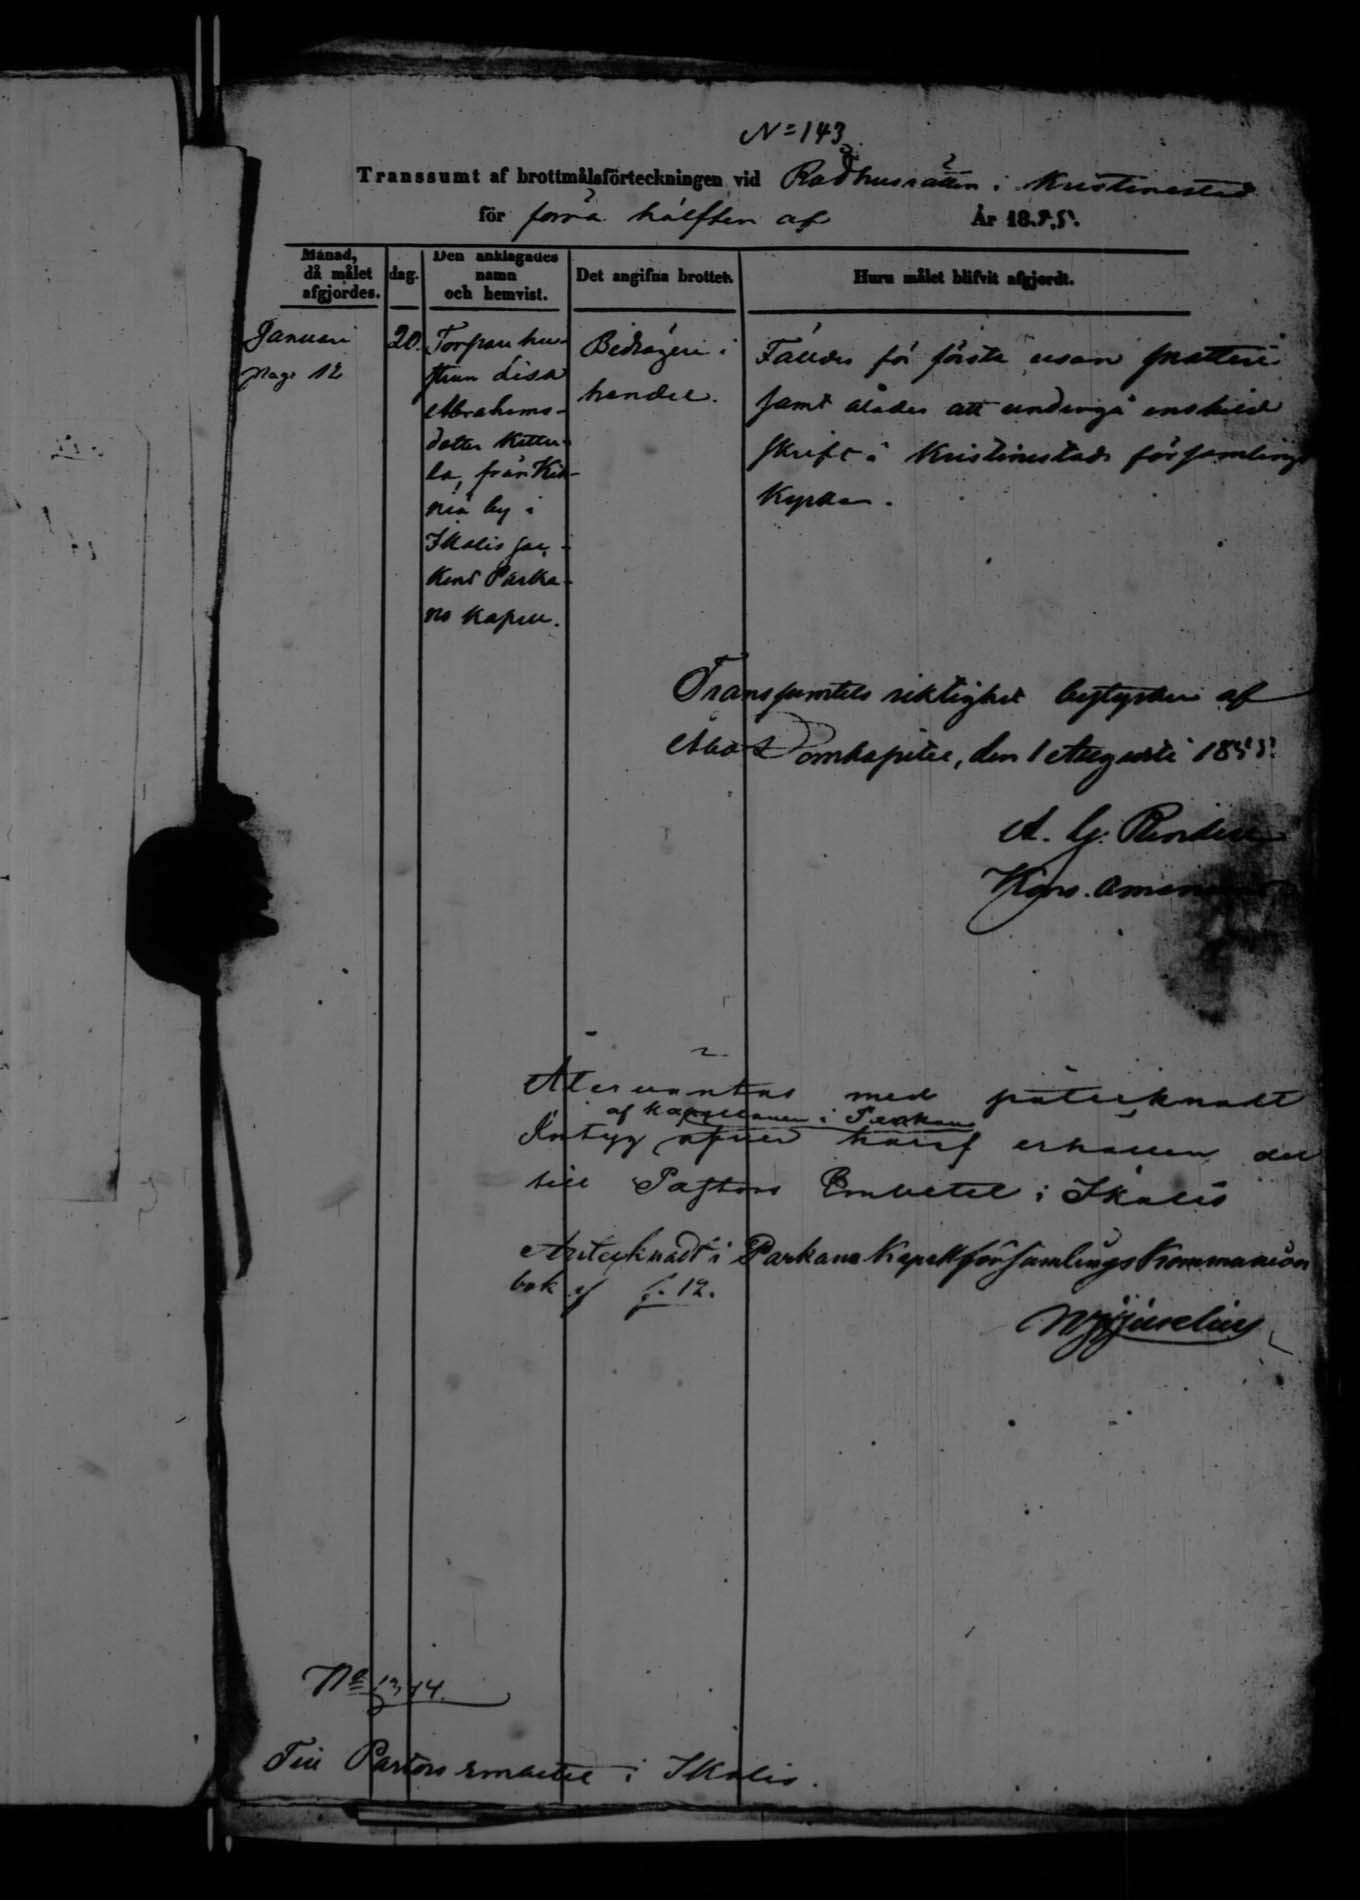 N= 143.
Transsumt af brottmålsförteckningen vid Rådhusrätten i Kristinestad
för förra hälften af År 1855.
Månad, då målet afgjordes.
dag.
Den anklagades namn och hemvist.
Det angifna brottet.
Huru målet blifvit afgjordt.
Januari
pag. 12
20.
Torpare hu-
strun Lisa
Abrahams-
dotter Kettu-
la, från
by i
Ikalis soc-
kens Parka-
no kapell.
Bedrägeri i
handel.
Fälldes för första resan snatteri
samt ålades att undergå enskild
skrift i Kristinestads församlings
Kyrka.
Transsumtets riktighet bestyrkes af
Åbo Domkapitel, den 1 Augusti 1855.
A. G.
Kons. Amanuens
Återväntas med påtecknadt
af Kapellanen i Parkano
Intyg öfver häraf erhållen del
till Pastors Embetet i Ikalis
Antecknadt i Parkano Kapellförsamlings Kommunion
bok f. 12.
No 13,14.
Till Pastors Embetet i Ikalis.